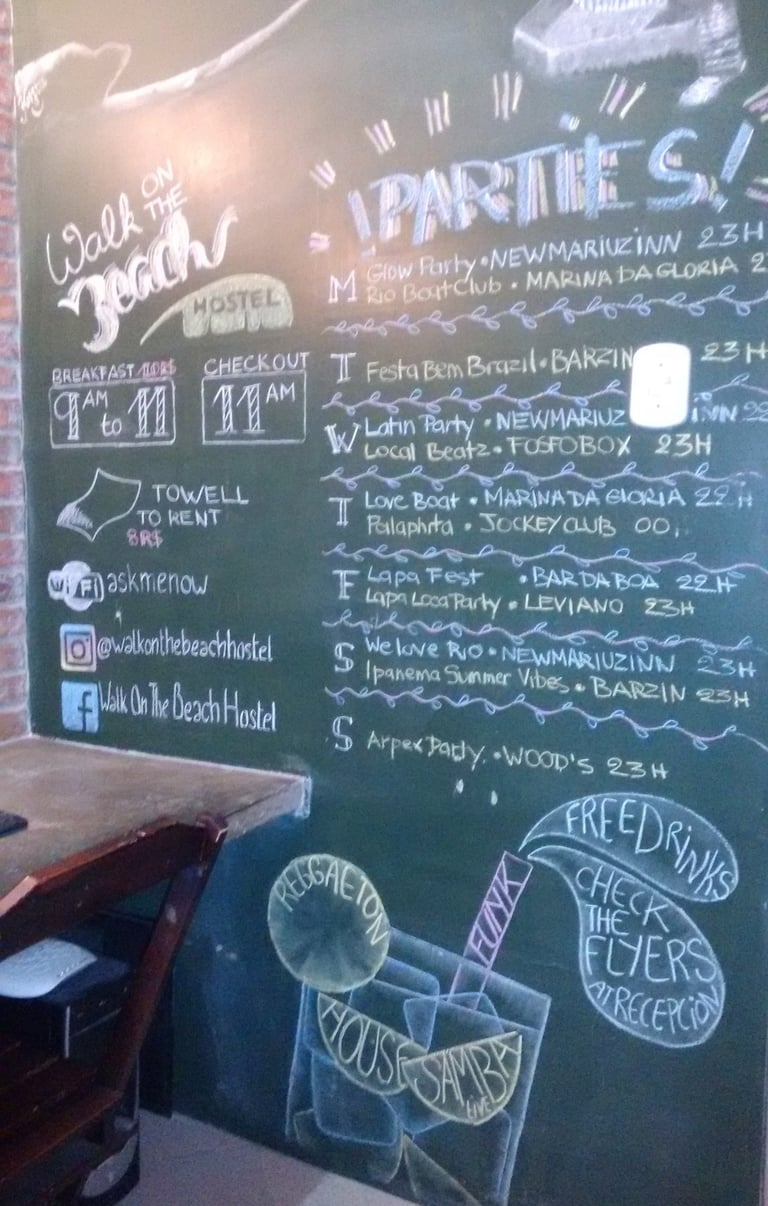 Walk ON THE
Beach
HOSTEL
BREAKFAST
9AM to 11
CHECKOUT
11AM
TOWELL
TO RENT
8R$
WiFi askmenow
@walkonthebeachhostel
f Walk On The Beach Hostel
¡PARTiES!
M Glow Party • NEWMARIUZINN 23H
Rio Boat Club • MARINA DA GLORIA 2
T Festa Bem Brazil • BARZIN 23H
W Latin Party • NEWMARIUZINN 22
Local Beatz • FOSFOBOX 23H
T Love Boat • MARINA DA GLORIA 22H
JOCKEY CLUB 00
F Lapa Fest • BAR DA BOA 22H
Lapa Loca Party • LEVIANO 23H
S We love Rio • NEWMARIUZINN 23H
Ipanema Summer Vibes • BARZIN 23H
S Arpex Party • WOOD'S 23H
FREE DRiNKS
CHECK
THE
FLYERS
AT RECEPCiON
REGGAETON
FUNK
HOUSE
SAMBA
LiVE